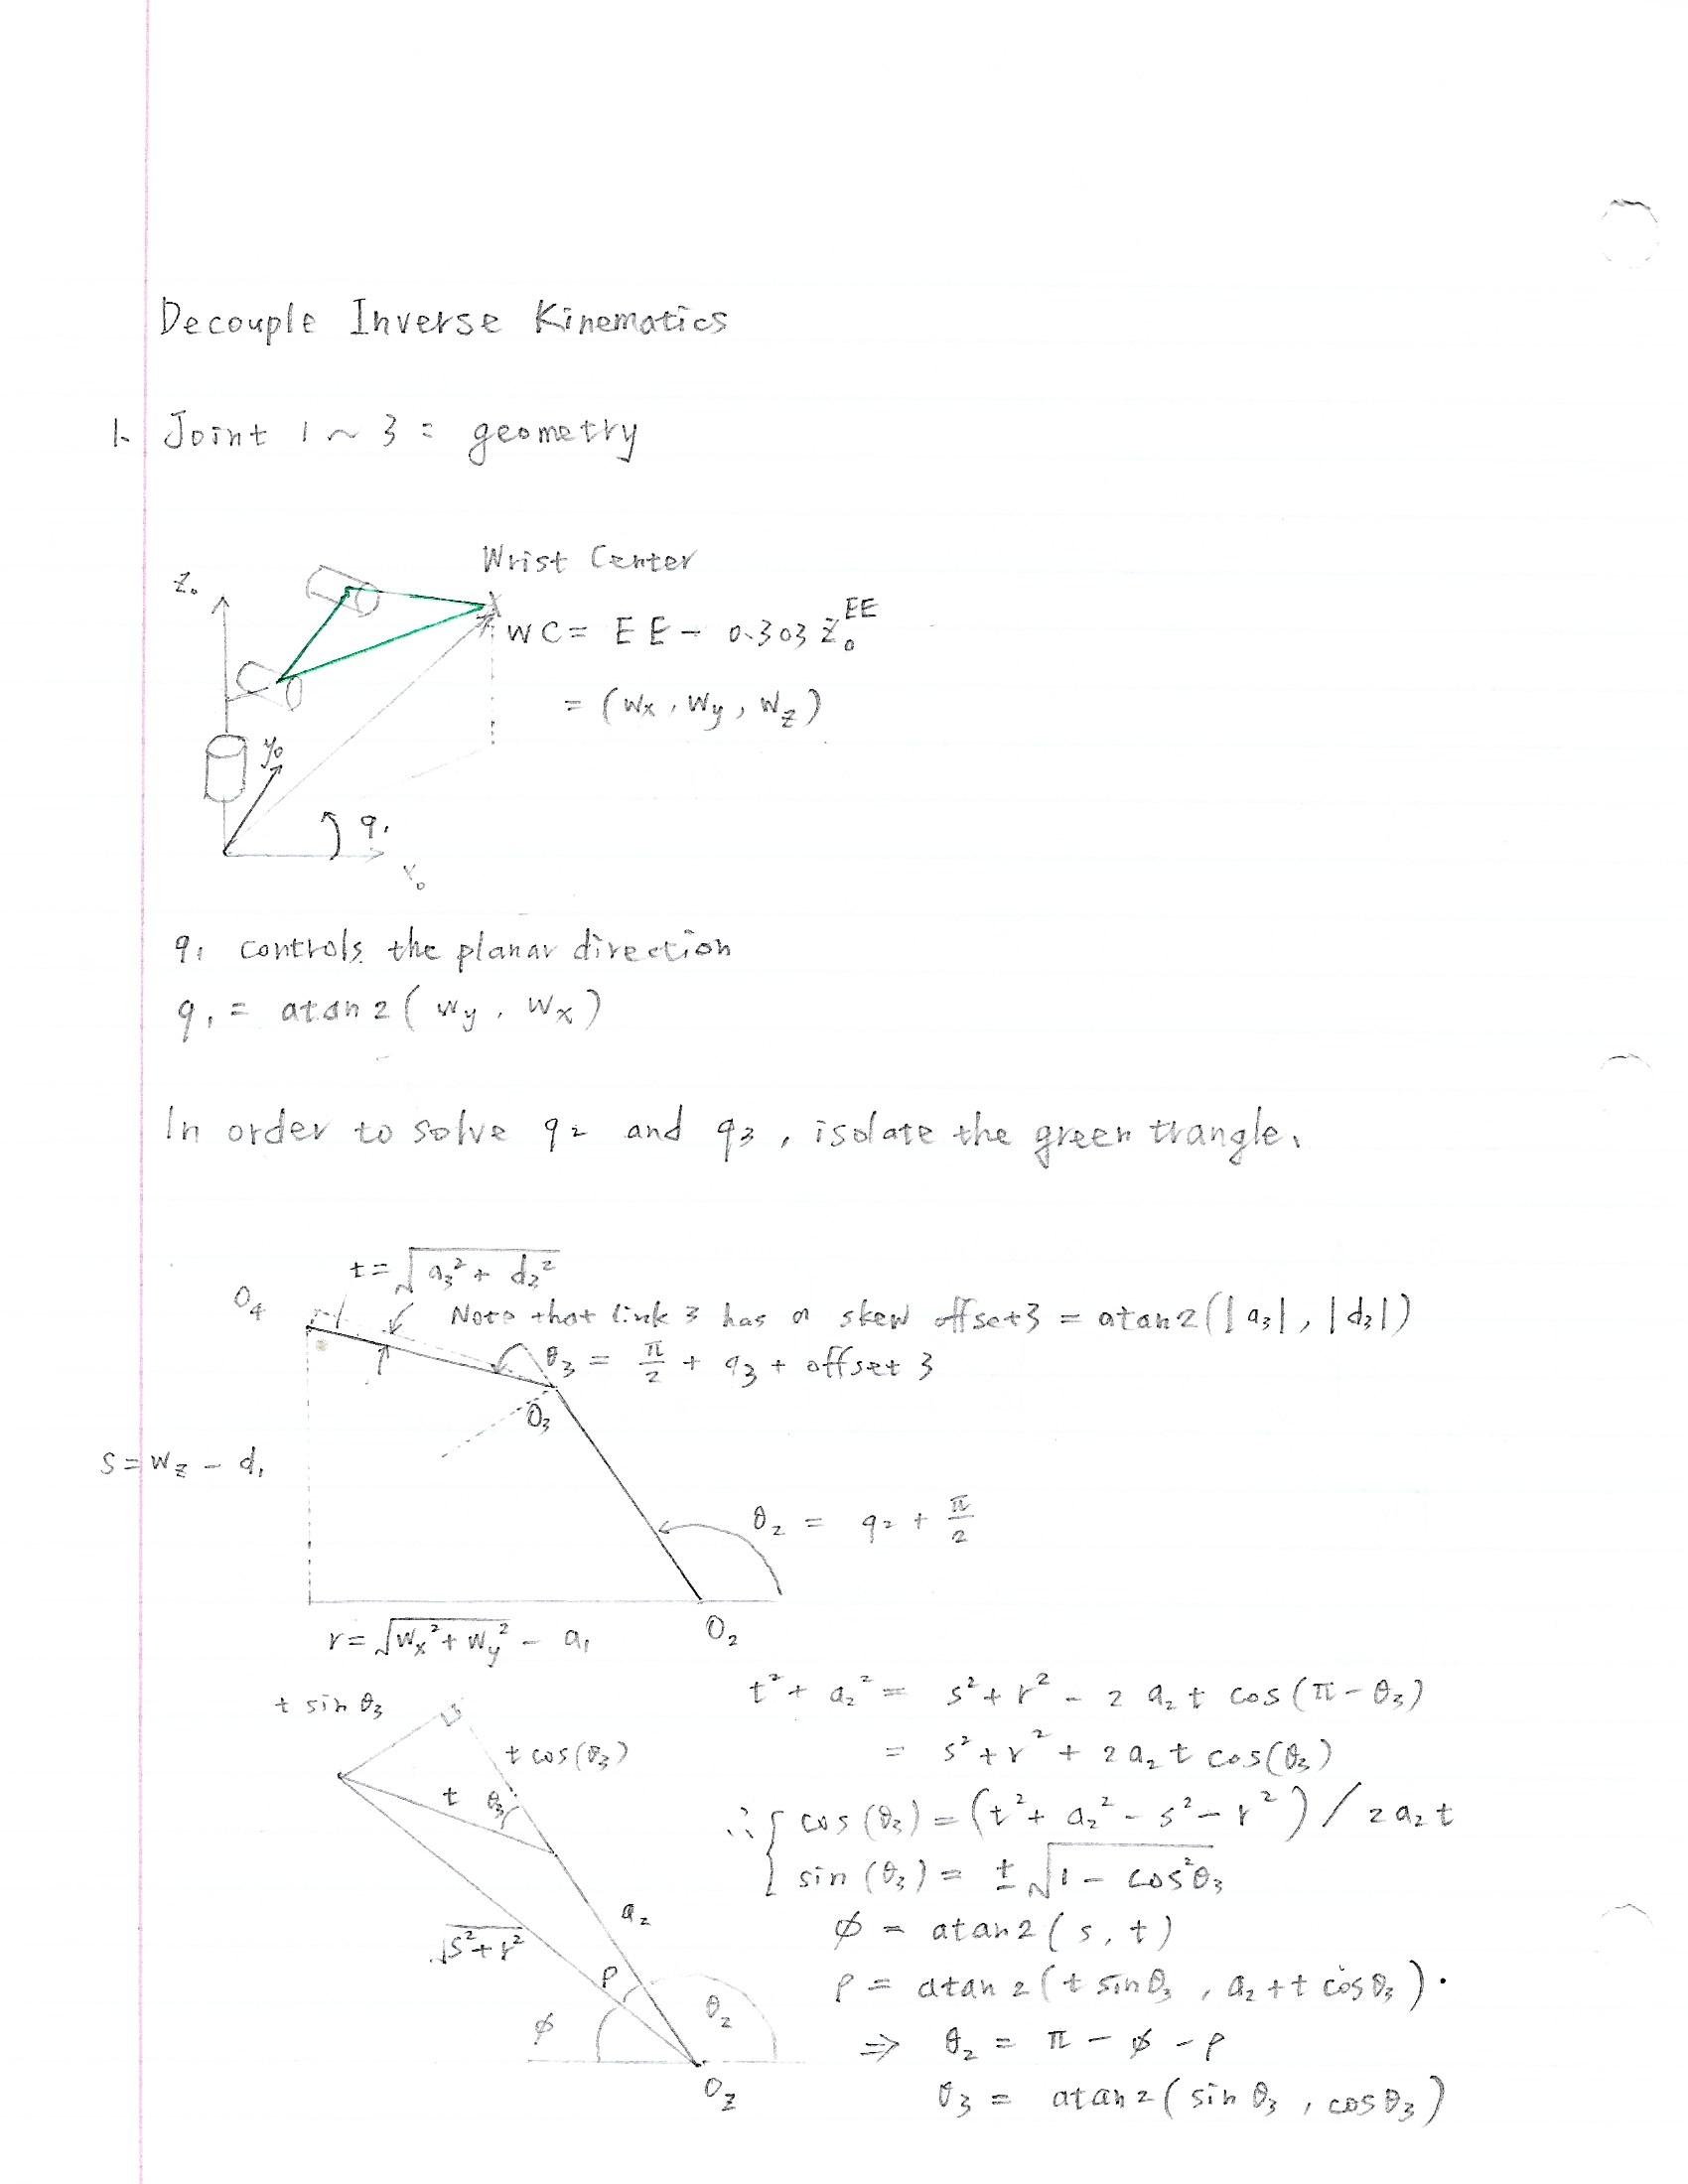 Decouple Inverse Kinematics
1. Joint 1 ~ 3 : geometry
Wrist Center
z₀
WC = EE - 0.303 z₀^EE
= (Wx, Wy, Wz)
y₀
q₁
x₀
q₁ controls the planar direction
q₁ = atan2 ( Wy, Wx )
In order to solve q₂ and q₃, isolate the green trangle.
t = √(a₃² + d₃²)
O₄
Note that link 3 has a skew offset3 = atan2(|a₃|, |d₃|)
θ₃ = π/2 + q₃ + offset 3
O₃
S = Wz - d₁
θ₂ = q₂ + π/2
r = √(Wx² + Wy²) - a₁
O₂
t² + a₂² = s² + r² - 2 a₂ t cos(π - θ₃)
t sin θ₃
= s² + r² + 2 a₂ t cos(θ₃)
t cos(θ₃)
t θ₃
∴ { cos(θ₃) = (t² + a₂² - s² - r²) / 2 a₂ t
sin(θ₃) = ± √(1 - cos²θ₃)
a₂
φ = atan2 ( s, t )
√(s² + r²)
ρ
ρ = atan2 ( t sinθ₃, a₂ + t cosθ₃ ).
θ₂
φ
⇒ θ₂ = π - φ - ρ
O₂
θ₃ = atan2 ( sin θ₃, cos θ₃ )